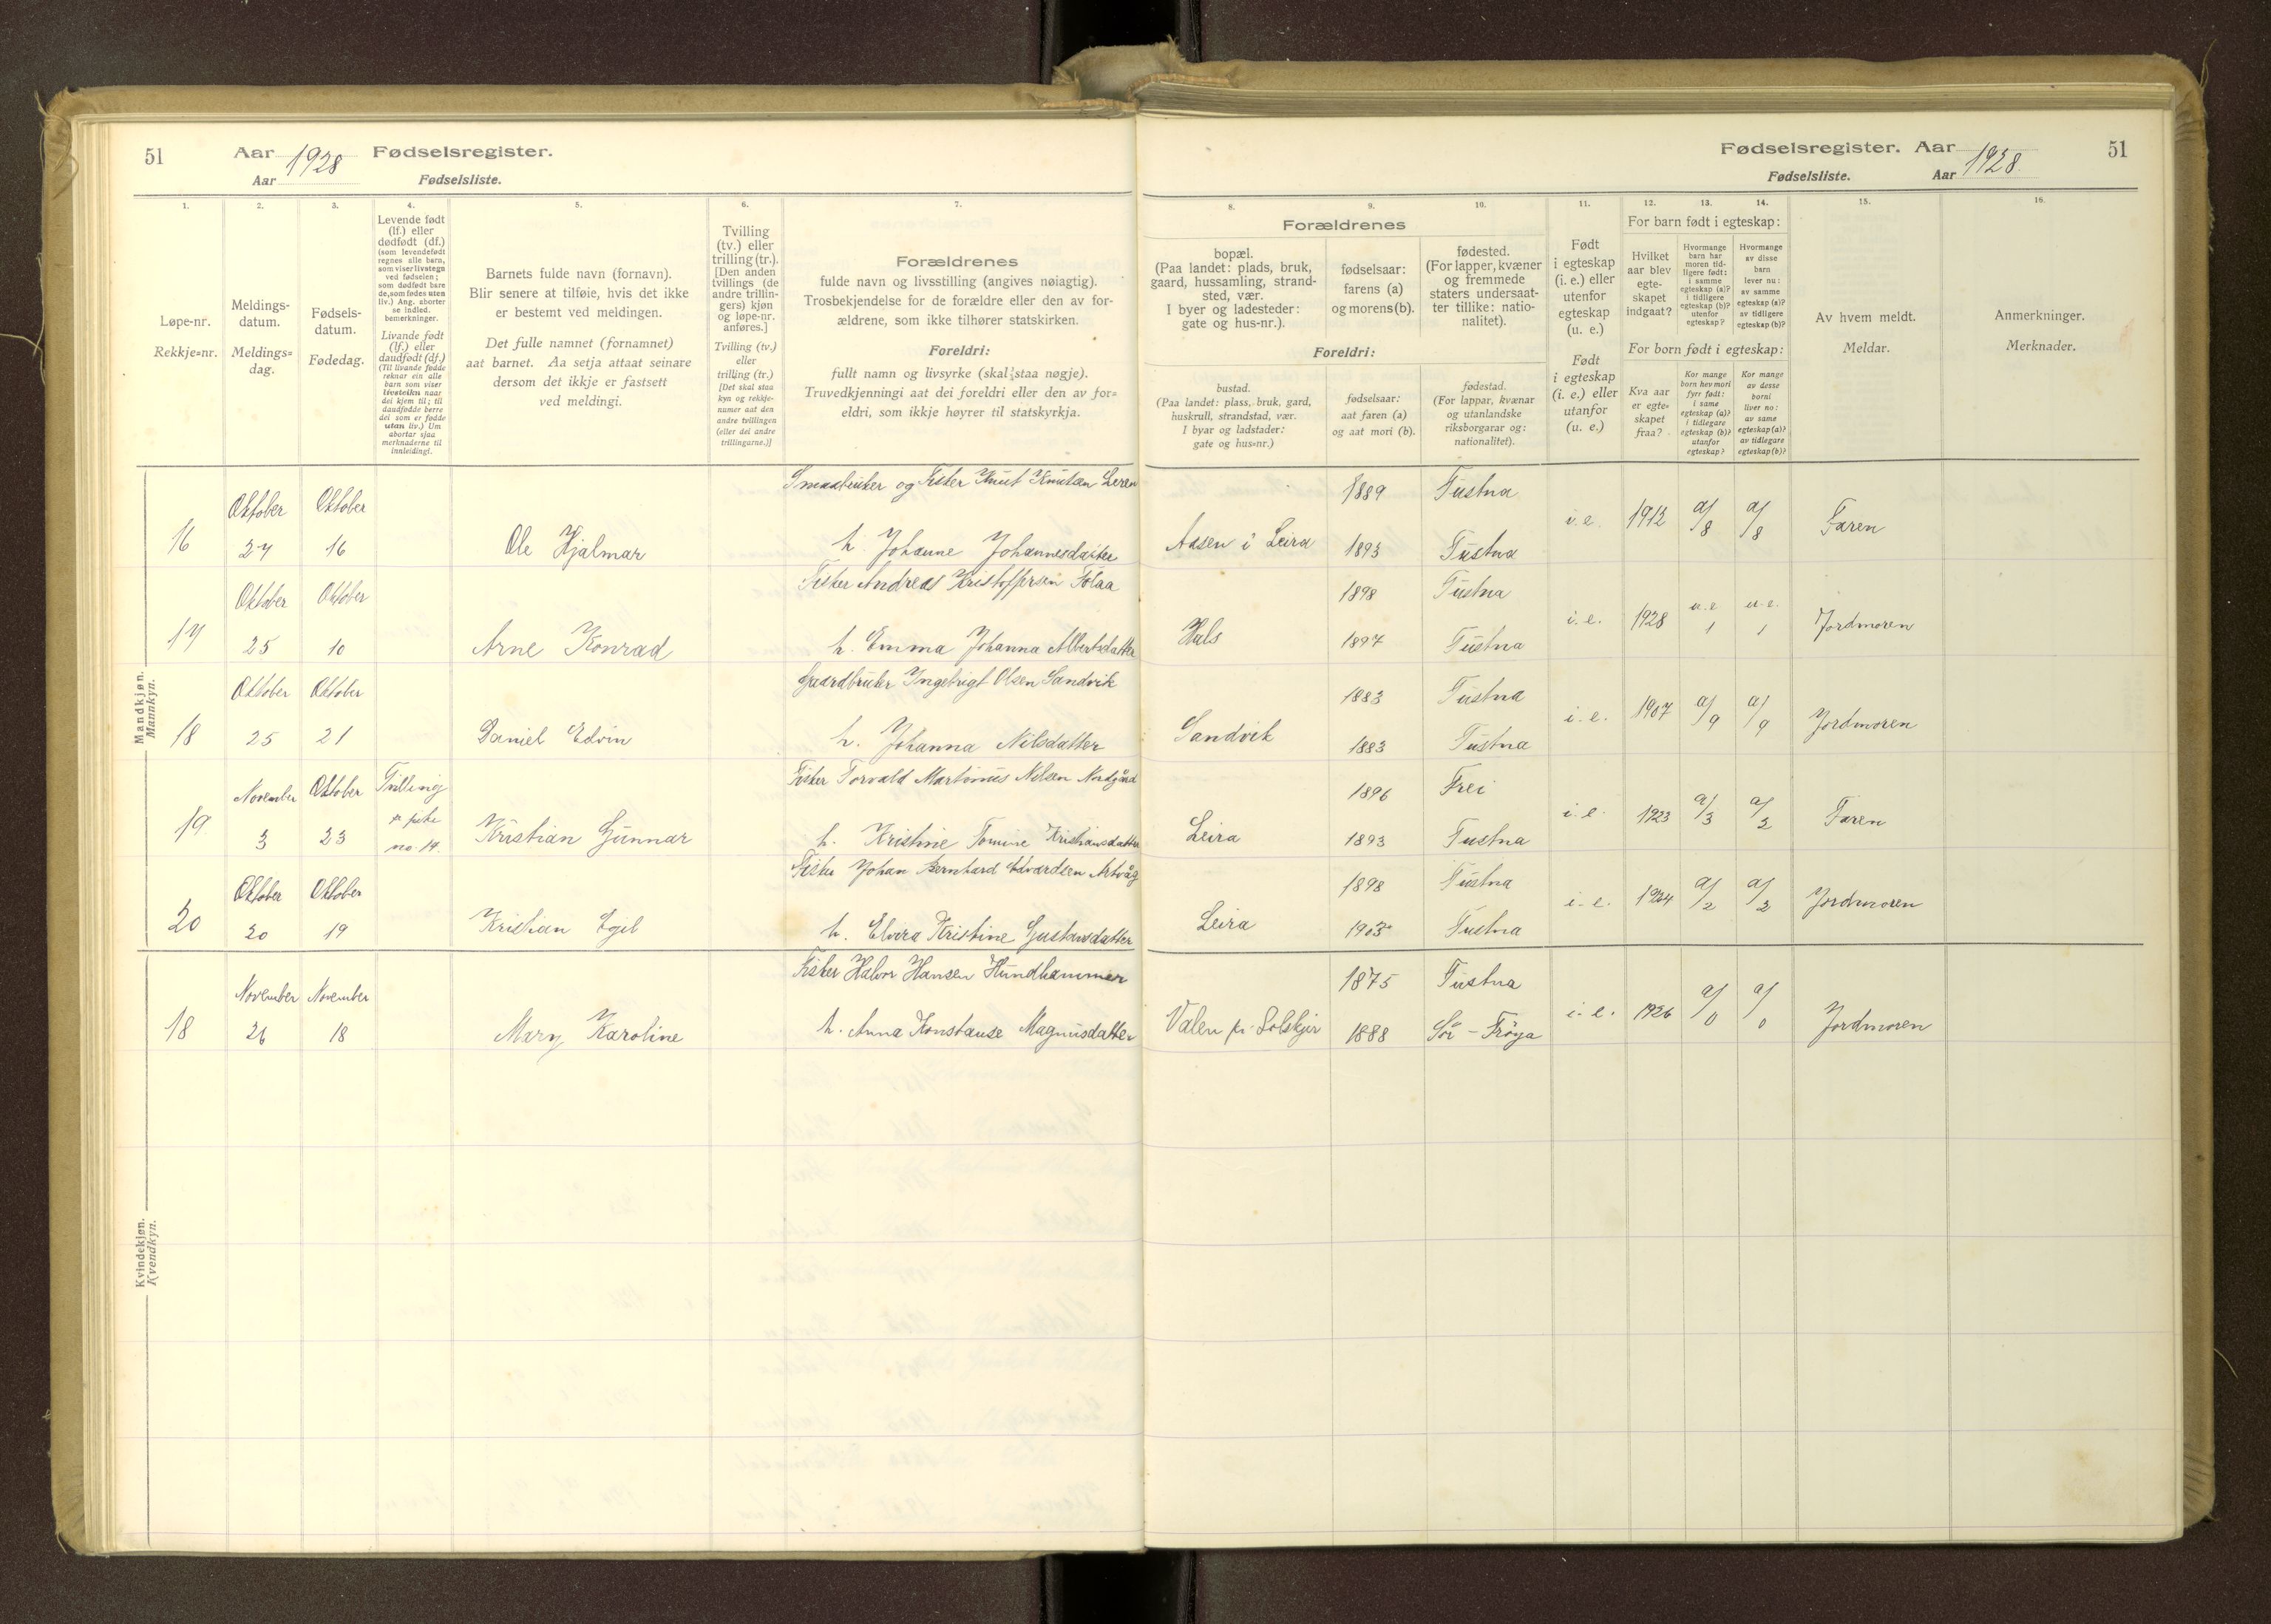 51
Aar 1928 Fødselsregister.
Aar Fødselsliste.
1.
2.
3.
4.
5.
6.
7.
Løpe-nr.
Rekkje-nr.
Meldings-
datum.
Meldings-
dag.
Fødsels-
datum.
Fødedag.
Levende født
(lf.) eller
dødfødt (df.)
(som levendefødt
regnes alle barn,
som viser livstegn
ved fødselen;
som dødfødt bare
de, som fødes uten
liv.) Ang. aborter
se indled.
bemerkninger.
Livande født
(lf.) eller
daudfødt (df.)
(Til livande fødde
reknar ein alle
barn som viser
livsteikn naar
dei kjem til; til
daudfødde berre
dei som er fødde
utan liv.) Um
abortar sjaa
merknaderne til
innleidingi.
Barnets fulde navn (fornavn).
Blir senere at tilføie, hvis det ikke
er bestemt ved meldingen.
Det fulle namnet (fornamnet)
aat barnet. Aa setja attaat seinare
dersom det ikkje er fastsett
ved meldingi.
Tvilling
(tv.) eller
trilling (tr.).
[Den anden
tvillings (de
andre trillin-
gers) kjøn
og løpe-nr.
anføres.]
Tvilling (tv.)
eller
trilling (tr.)
[Det skal staa
kyn og rekkje-
numer aat den
andre tvillingen
(eller dei andre
trillingarne.)]
Forældrenes
fulde navn og livsstilling (angives nøiagtig).
Trosbekjendelse for de forældre eller den av for-
ældrene, som ikke tilhører statskirken.
Foreldri:
fullt namn og livsyrke (skal staa nøgje).
Truvedkjenningi aat dei foreldri eller den av for=
eldri, som ikkje høyrer til statskyrkja.
Mandkjøn.
Mannkyn.
16
Oktober
27
Oktober
16
Ole Hjalmar
Smaabruker og Fisker Knut Knutsen Leren
h. Johanne Johannesdatter
17
Oktober
25
Oktober
10
Arne Konrad
Fisker Andreas Kristoffersen Folaa
h. Emma Johanna Albertsdatter
18
Oktober
25
Oktober
21
Daniel Edvin
Gaardbruker Ingebrigt Olsen Sandvik
h. Johanna Nilsdatter
19
November
3
Oktober
23
Tvilling
pike
no. 14.
Kristian Gunnar
Fisker Torvald Martinus Nilsen Nordgård
h. Kristine Tomine Kristiansdatter
20
Oktober
20
Oktober
19
Kristian Egil
Fisker Johan Bernhard Edvardsen Artvåg
h. Elvira Kristine Gustavsdatter
Kvindekjøn.
Kvendkyn.
18
November
26
November
18
Mary Karoline
Fisker Halvor Hansen Hundhammer
h. Anna Konstanse Magnusdatter
Fødselsregister. Aar 1928.
Fødselsliste. Aar
51
8.
9.
10.
11.
12.
13.
14.
15.
16.
Forældrenes
bopæl.
(Paa landet: plads, bruk,
gaard, hussamling, strand-
sted, vær.
I byer og ladesteder:
gate og hus-nr.).
fødselsaar:
farens (a)
og morens (b).
fødested.
(For lapper, kvæner
og fremmede
staters undersaat-
ter tillike: natio-
nalitet).
Foreldri:
bustad.
(Paa landet: plass, bruk, gard,
huskrull, strandstad, vær.
I byar og ladstader:
gate og hus-nr.)
fødselsaar:
aat faren (a)
og aat mori (b).
fødestad.
(For lappar, kvænar
og utanlandske
riksborgarar og:
nationalitet).
Født
i egteskap
(i. e.) eller
utenfor
egteskap
(u. e.)
Født
i egteskap
(i. e.) eller
utanfor
(u. e.)
For barn født i egteskap:
Hvilket
aar blev
egte-
skapet
indgaat?
Hvormange
barn har
moren tid-
ligere født:
i samme
egteskap (a)?
i tidligere
egteskap (b)?
utenfor
egteskap?
Hvormange
av disse
barn
lever nu:
av samme
egteskap (a)?
av tidligere
egteskap (b)?
For born født i egteskap:
Kva aar
er egte-
skapet
fraa?
Kor mange
born hev mori
fyrr født:
i same
egteskap (a)?
i tidlegare
egteskap (b)?
utanfor
egteskap?
Kor mange
av desse
borni
liver no:
av same
egteskap (a)?
av tidlegare
egteskap (b)?
Av hvem meldt.
Meldar.
Anmerkninger.
Merknader.
Aasen i Leira
1889
1893
Tustna
Tustna
i. e.
1912
a/8
a/8
Faren
Hals
1898
1897
Tustna
Tustna
i. e.
1928
u. e. 1
u. e. 1
Jordmoren
Sandvik
1883
1883
Tustna
Tustna
i. e.
1907
a/9
a/9
Jordmoren
Leira
1896
1893
Frei
Tustna
i. e.
1923
a/3
a/3
Faren
Leira
1898
1903
Tustna
Tustna
i. e.
1924
a/2
a/2
Jordmoren
Valen pr. Solskjir
1875
1888
Tustna
Sör-Fröya
i. e.
1926
a/0
a/0
Jordmoren